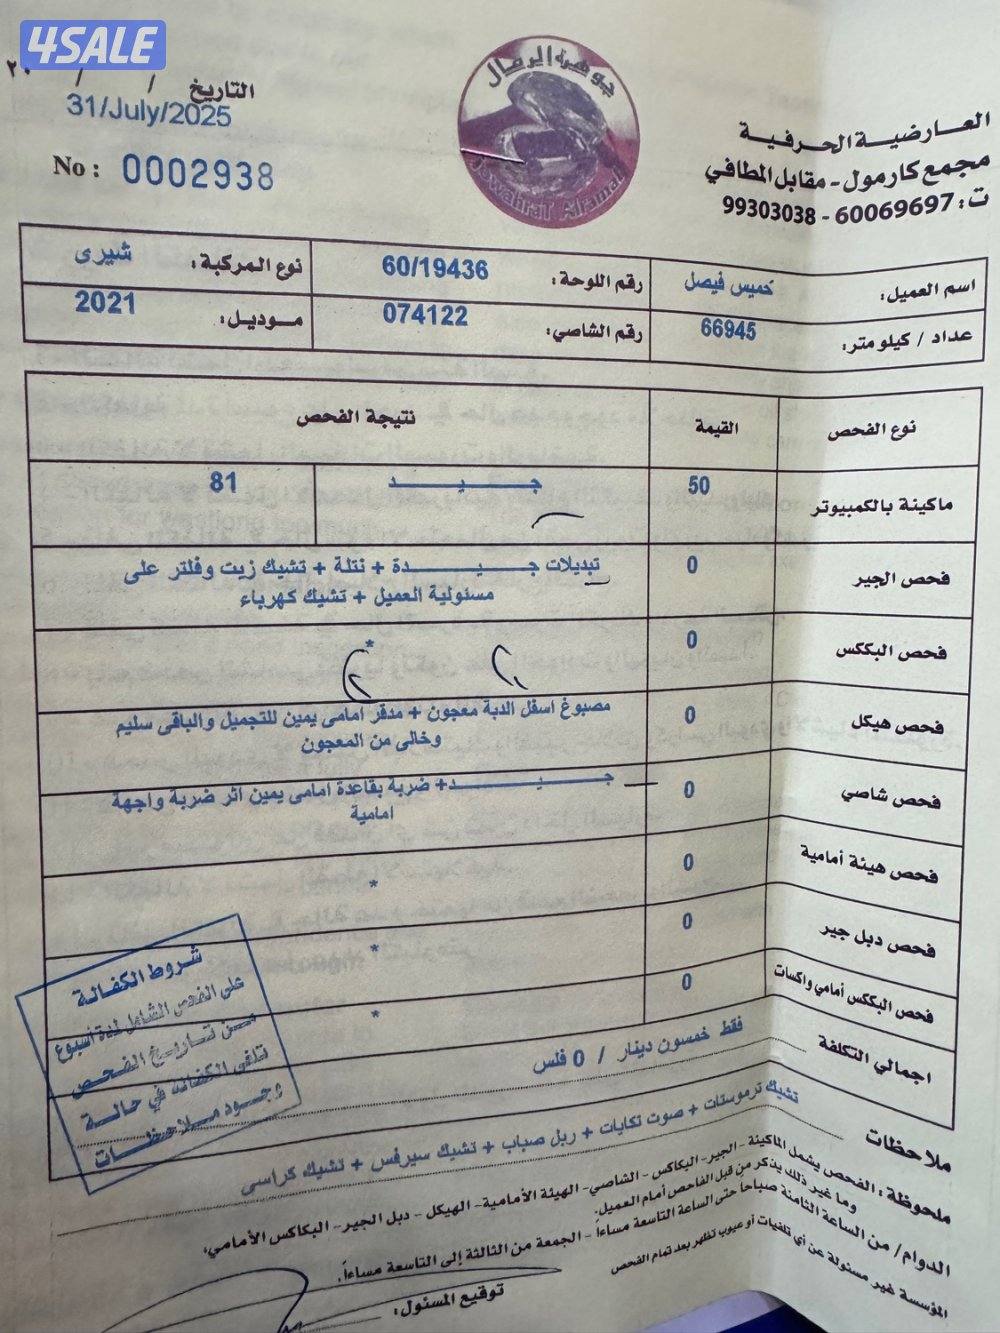 4SALE
التاريخ / / ٢٠
31/July/2025
No : 0002938
جوهرة الرمال
JowahraT Alramal
العارضية الحرفية
مجمع كارمول - مقابل المطافي
ت : 60069697 - 99303038
اسم العميل: خميس فيصل رقم اللوحة: 60/19436 نوع المركبة: شيرى
عداد / كيلومتر: 66945 رقم الشاصي: 074122 موديل: 2021
نوع الفحص القيمة نتيجة الفحص
ماكينة بالكمبيوتر 50 جيد 81
فحص الجير 0 تبديلات جيدة + نتلة + تشيك زيت وفلتر على
مسئولية العميل + تشيك كهرباء
فحص البككس 0 *
فحص هيكل 0 مصبوغ اسفل الدبة معجون + مدقر امامى يمين للتجميل والباقى سليم
وخالى من المعجون
فحص شاصي 0 جيد+ ضربة بقاعدة امامى يمين اثر ضربة واجهة
امامية
فحص هيئة أمامية 0 *
فحص دبل جير 0 *
فحص البككس أمامي واكسات 0 *
اجمالي التكلفة فقط خمسون دينار / 0 فلس
شروط الكفالة
على الفحص الشامل لمدة اسبوع
من تاريخ الفحص
تلغى الكفالة في حالة
وجود ملاحظات
ملاحظات تشيك ترموستات + صوت تكايات + ربل صباب + تشيك سيرفس + تشيك كراسى
ملحوظة : الفحص يشمل الماكينة - الجير - البكاكس - الشاصي - الهيئة الأمامية - الهيكل - دبل الجير - البكاكس الأمامي،
وما غير ذلك يذكر من قبل الفاحص أمام العميل.
الدوام / من الساعة الثامنة صباحاً حتى الساعة التاسعة مساءاً - الجمعة من الثالثة إلى التاسعة مساءاً.
المؤسسة غير مسئولة عن أي تلفيات أو عيوب تظهر بعد تمام الفحص
توقيع المسئول: